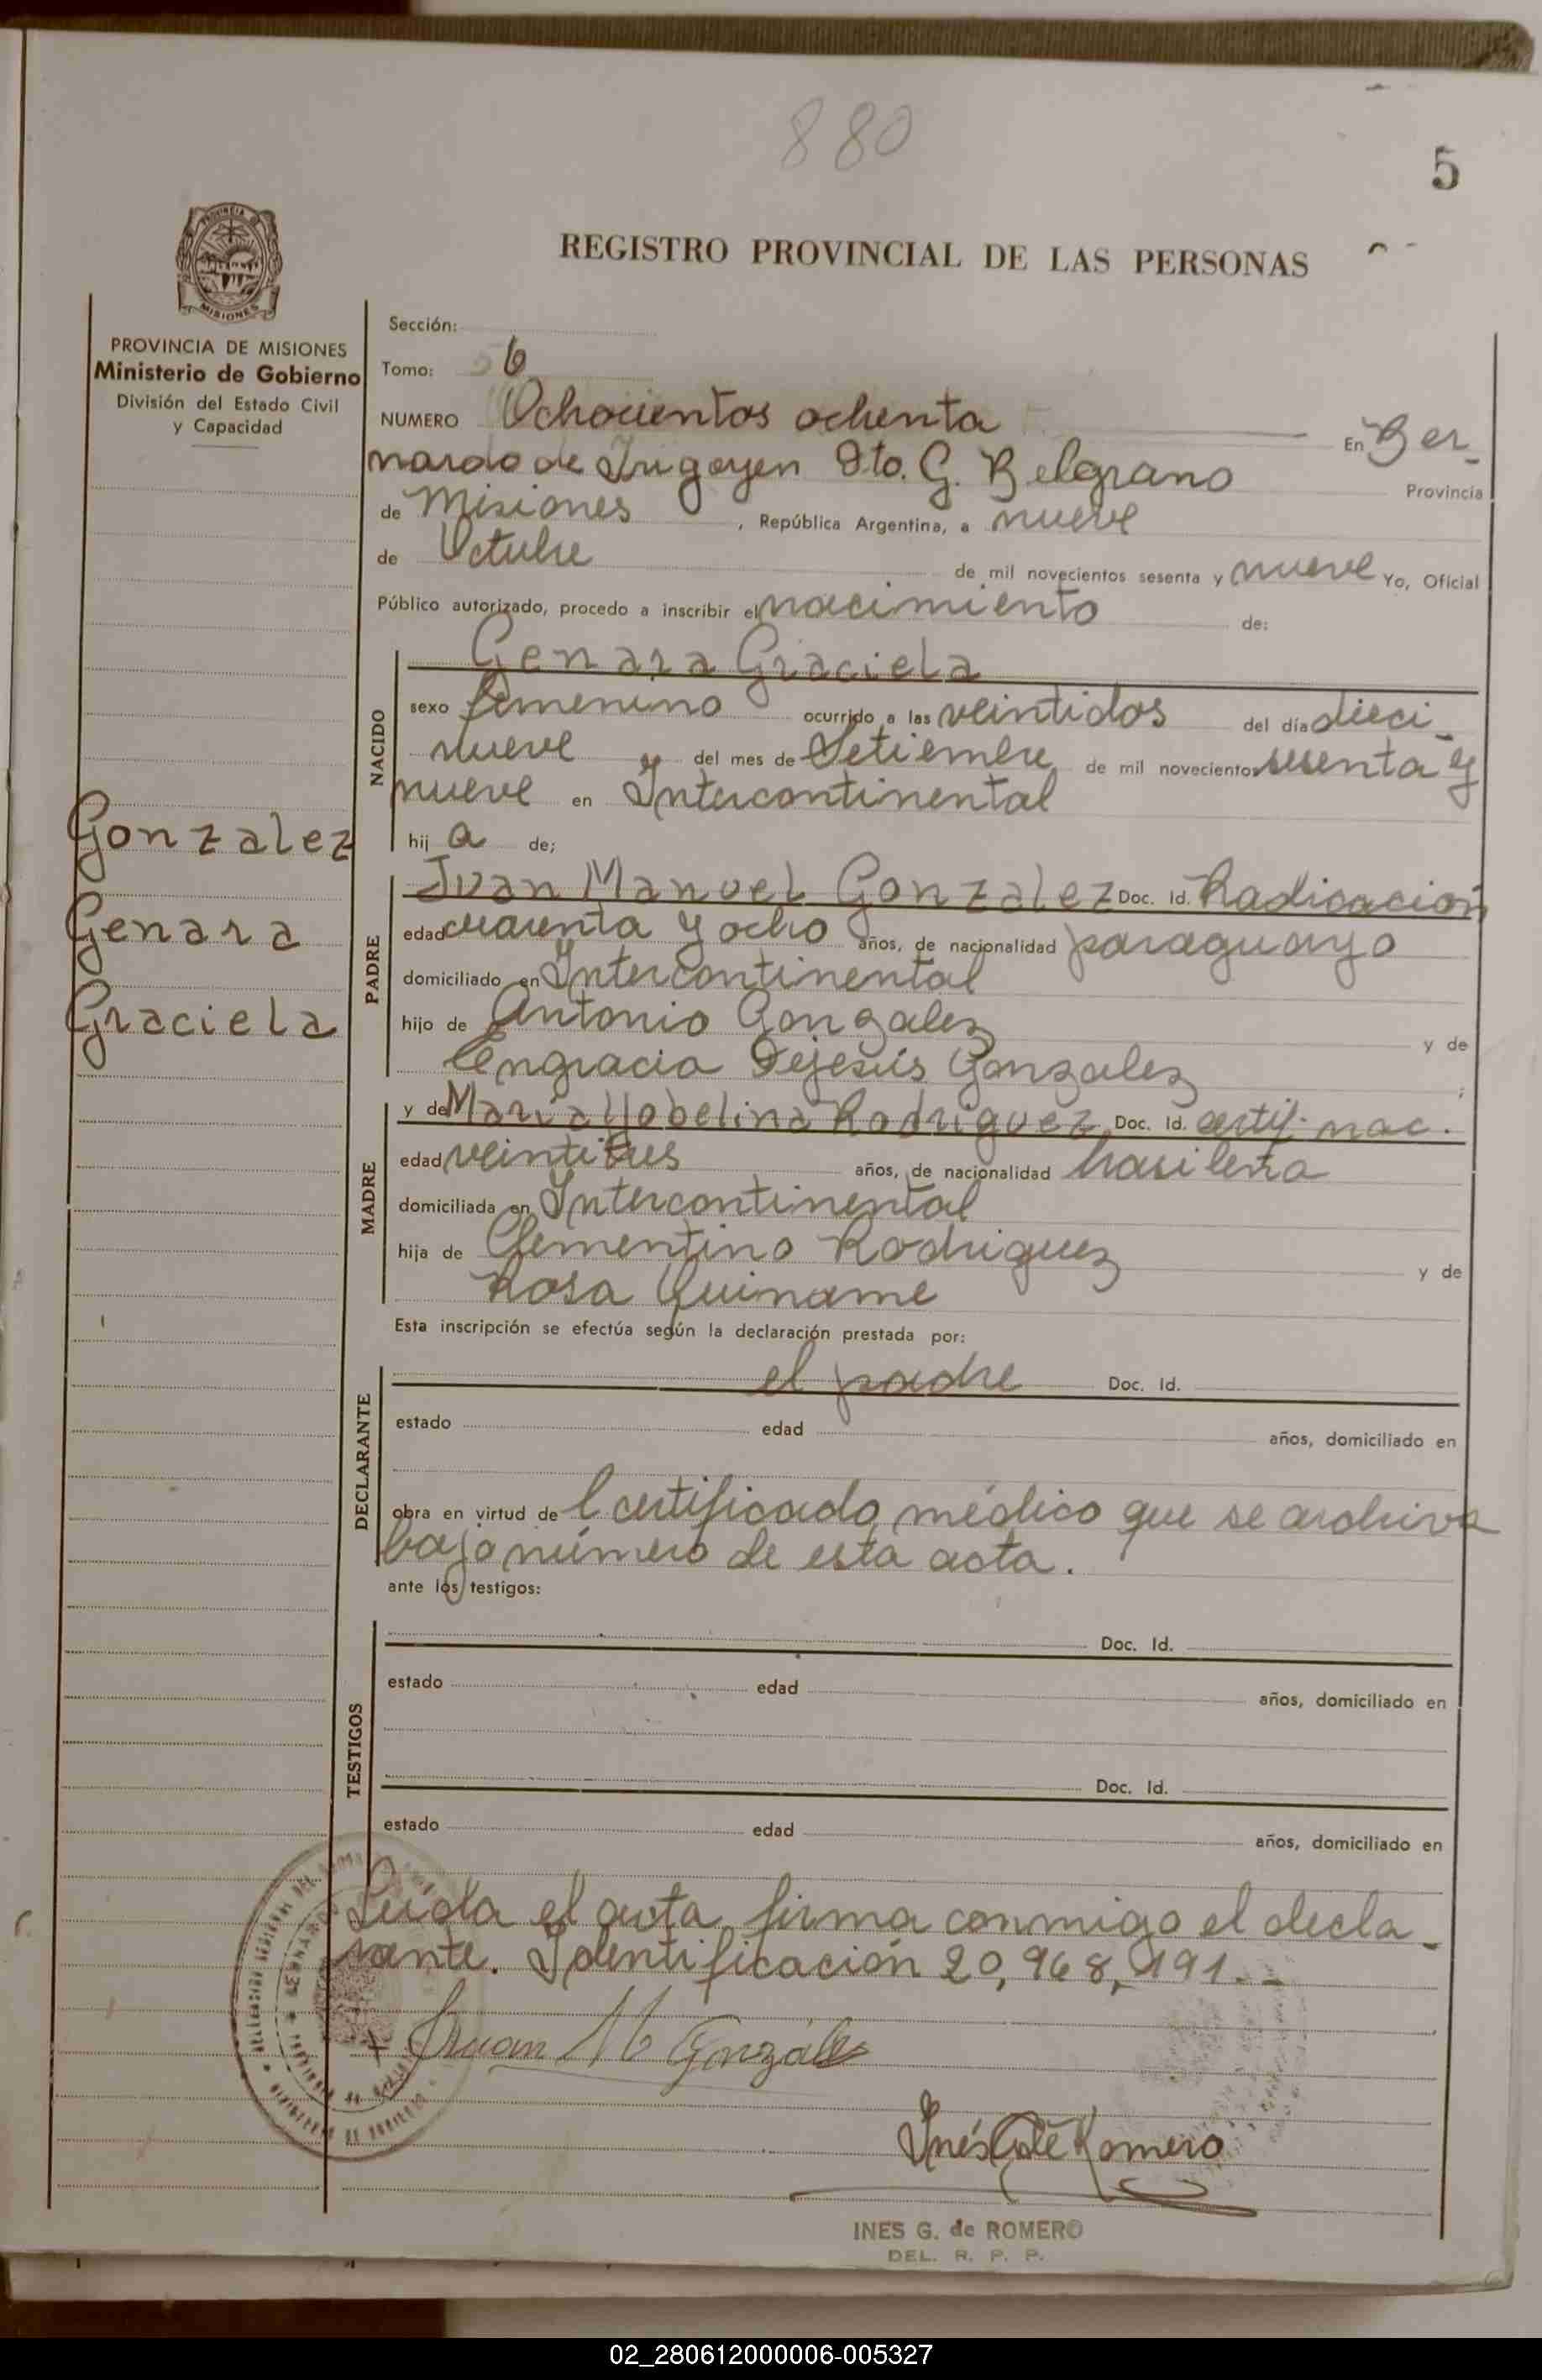 880
5
REGISTRO PROVINCIAL DE LAS PERSONAS
PROVINCIA DE MISIONES
Ministerio de Gobierno
División del Estado Civil
y Capacidad
Sección:
Tomo: 6
NUMERO Ochocientos ochenta En Ber-
nardo de Irigoyen Dto. G. Belgrano Provincia
de Misiones, República Argentina, a nueve
de Octubre de mil novecientos sesenta y nueve Yo, Oficial
Público autorizado, procedo a inscribir el nacimiento de:
NACIDO
Genara Graciela
sexo femenino ocurrido a las veintidos del día dieci-
nueve del mes de Setiembre de mil novecientos sesenta y
nueve en Intercontinental
hij a de;
Gonzalez
Genara
Graciela
PADRE
Juan Manuel Gonzalez Doc. Id. Radicación
edad cuarenta y ocho años, de nacionalidad paraguayo
domiciliado en Intercontinental
hijo de Antonio Gonzalez y de
Engracia Dejesús Gonzalez ;
MADRE
y de María Rodriguez Doc. Id. certif. nac.
edad veintitres años, de nacionalidad brasileña
domiciliada en Intercontinental
hija de Clementino Rodriguez y de
Rosa
Esta inscripción se efectúa según la declaración prestada por:
DECLARANTE
el padre Doc. Id.
estado edad años, domiciliado en
obra en virtud de l certificado médico que se archiva
bajo número de esta acta.
ante los testigos:
TESTIGOS
Doc. Id.
estado edad años, domiciliado en
Doc. Id.
estado edad años, domiciliado en
Leída el acta, firma conmigo el decla-
rante. Identificación 20,968,191.-
Juan M Gonzáles
Inés G de Romero
INES G. de ROMERO
DEL. R. P. P.
02_280612000006-005327